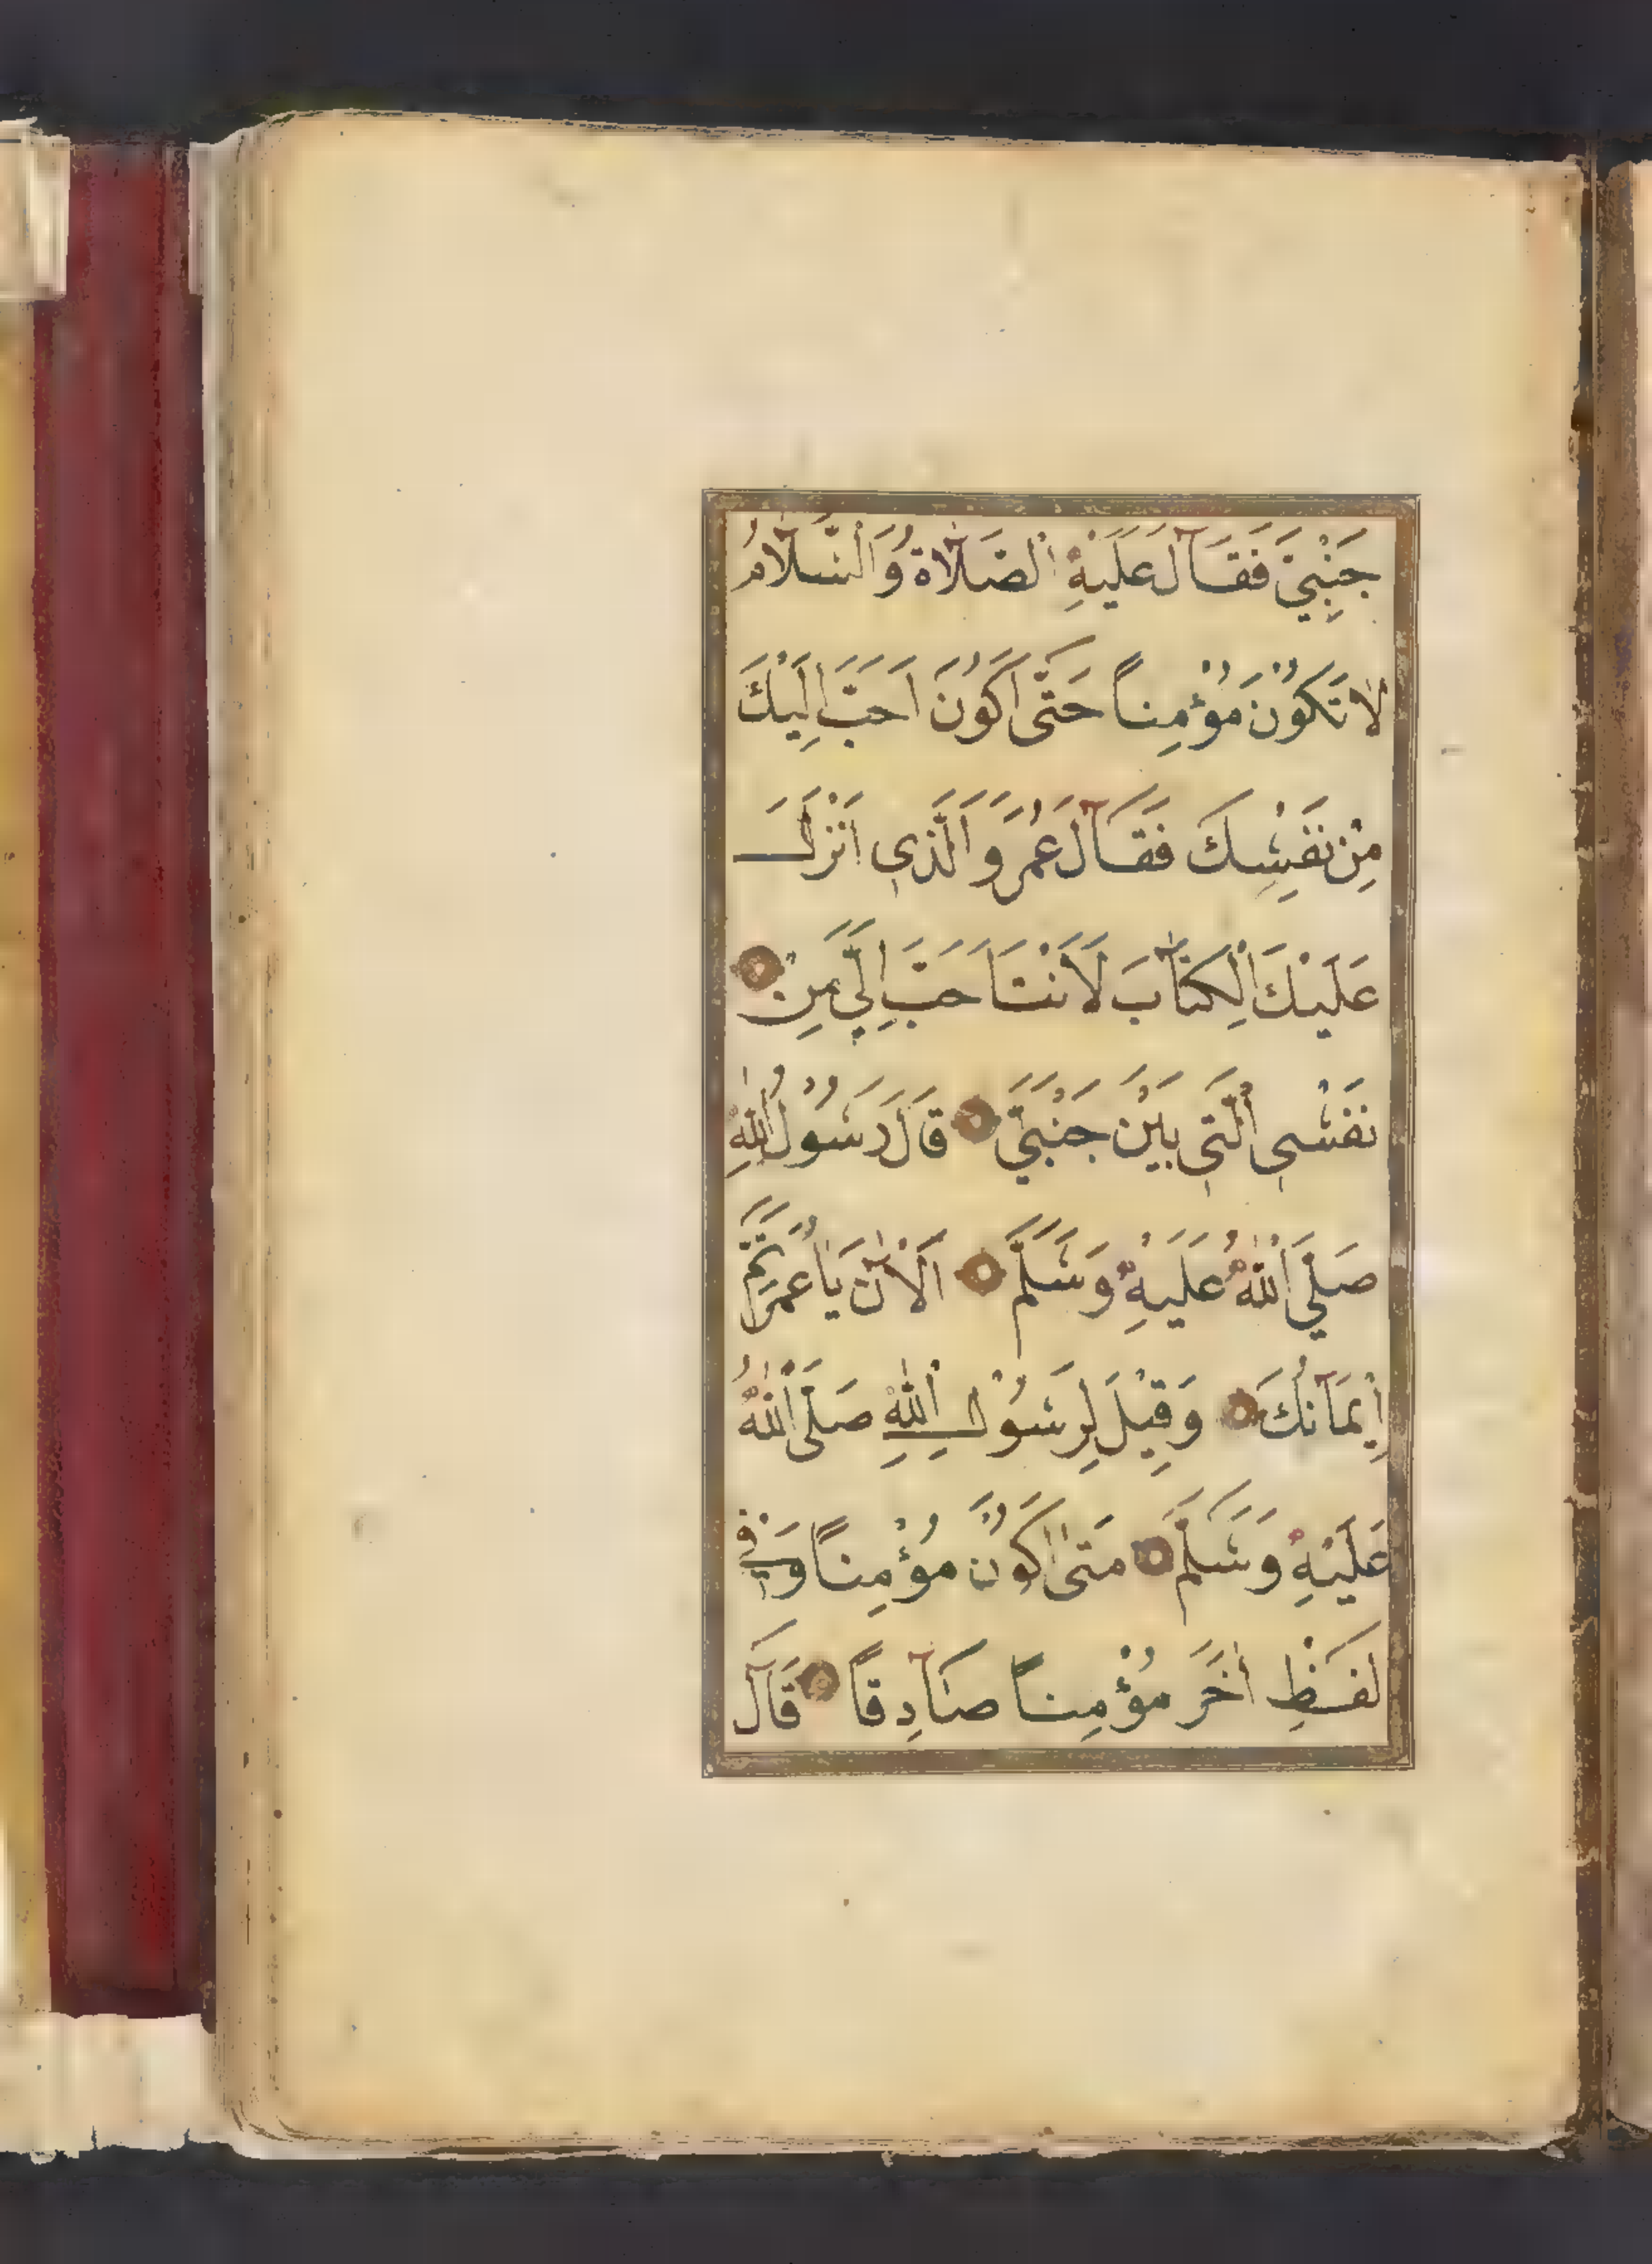 جَنْبَيَّ فَقَالَ عَلَيْهِ الصَّلَاةُ وَالسَّلَامُ
لَا تَكُونُ مُؤْمِناً حَتَّى اَكُونَ اَحَبَّ اِلَيْكَ
مِنْ نَفْسِكَ فَقَالَ عُمَرُ وَالَّذِى اَنْزَلَ
عَلَيْكَ الْكِتَابَ لَاَنْتَ اَحَبُّ اِلَيَّ مِنْ
نَفْسِى الَّتِى بَيْنَ جَنْبَيَّ قَالَ رَسُولُ اللهِ
صَلَّي اللهُ عَلَيْهِ وَسَلَّمَ اَلْاٰنَ يَا عُمَرُ تَمَّ
اِيمَانُكَ وَقِيْلَ لِرَسُوْلِ اللهِ صَلَّى اللهُ
عَلَيْهِ وَسَلَّمَ مَتَى اَكُونُ مُؤْمِناً وَفِي
لَفْظٍ اٰخَرَ مُؤْمِناً صَادِقاً قَالَ